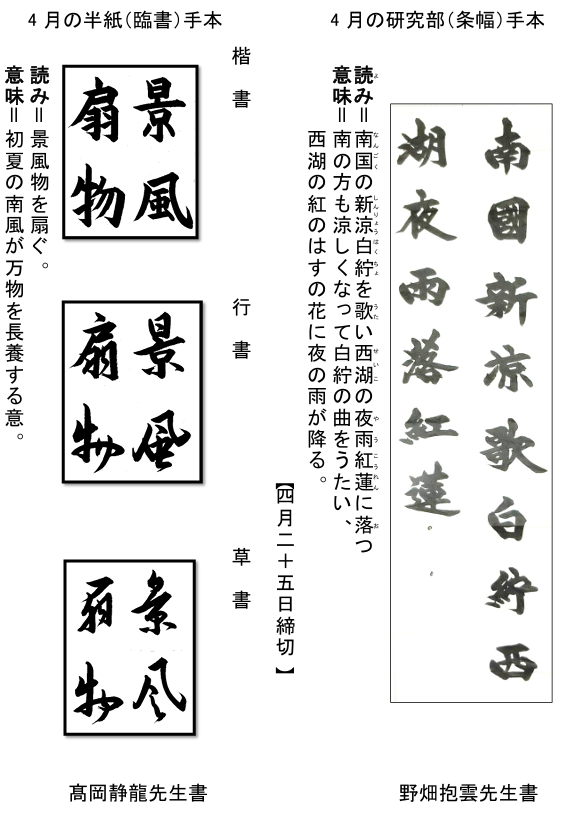 4月の研究部（条幅）手本
南國新涼歌白紵西
湖夜雨落紅蓮
読み＝南国の新涼白紵を歌い西湖の夜雨紅蓮に落つ
なんごく しんりょうはくちょ うた せいこ やう こうれん お
よ
意味＝南の方も涼しくなって白紵の曲をうたい、
西湖の紅のはすの花に夜の雨が降る。
野畑抱雲先生書
【四月二十五日締切 】
4月の半紙（臨書）手本
楷書
景風
扇物
行書
景風
扇物
草書
景風
扇物
読み＝景風物を扇ぐ。
意味＝初夏の南風が万物を長養する意。
髙岡静龍先生書